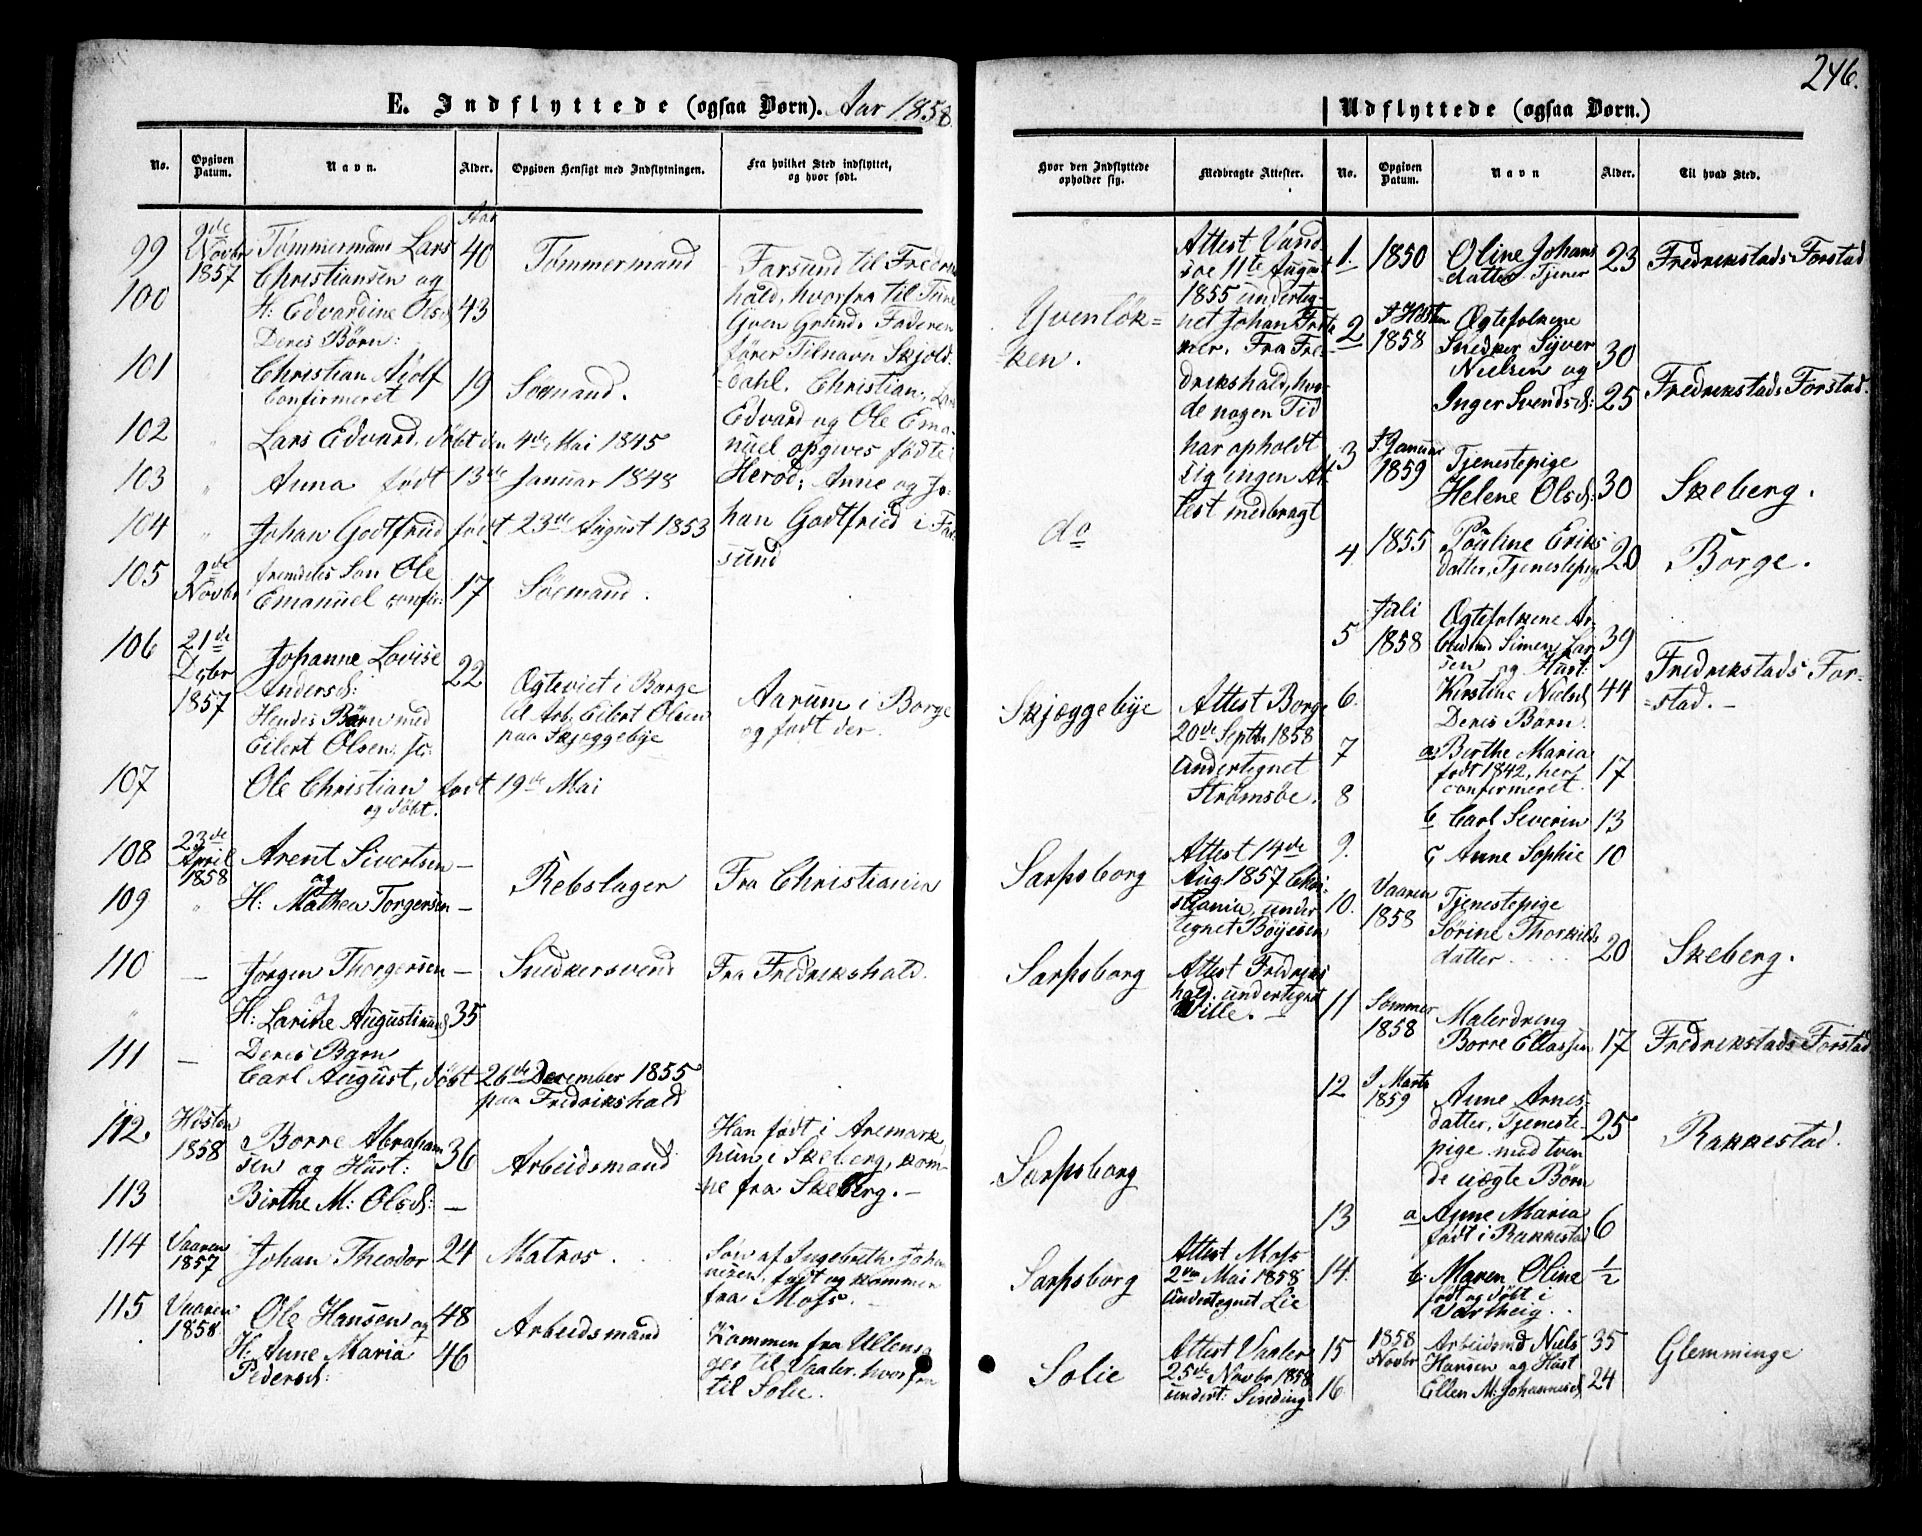 246.
E. Indflyttede (ogsaa Børn). Aar 1858
Udflyttede (ogsaa Børn.)
No.
Opgiven Datum.
Navn.
Alder.
Opgiven Hensigt med Indflytningen.
Fra hvilket Sted indflyttet,
og hvor født.
Hvor den Indflyttede
opholder sig.
Medbragte Attester.
No.
Opgiven Datum.
Navn
Alder.
Til hvad Sted.
Aar
99 9de Novbr 1857 Tømmermand Lars 40 Tømmermand Farsund til Fredriks
Christiansen og
100 H: Edvardine Olsd. 43
hald, hvorfra til Tune
Yven Grund. Faderen
Deres Børn:
fører Tilnavn Skjold
101 Christian Adolf 19 Sømand.
confirmeret
=dahl. Christian, Lars
Edvard og Ole Ema-
102 " Lars Edvard, døbt den 4de Mai 1845
nuel opgives fødte i
103 " Anna født 13de Januar 1848
Herød, Anne og Jo-
104 " Johan Godtfried født 23de August 1853
han Godtfried i Far
sund
105 9de Novbr fremdeles Søn Ole
Emanuel confir: 17 Søemand.
106 21de Dcbr 1857 Johanne Lovise
Andersd: 22
Hendes Børn med
Eilert Olsen, sc:
Ægteviet i Borge
til Arb. Eilert Olsen
paa Skjeggebye
Aarum i Borge
og født der.
107 Ole Christian født 19de Mai
og døbt.
108 23de April 1858 Arent Sivertsen —
og
Rebslager Fra Christiania
109 " H: Mathea Torgersen —
110 — Jørgen Thorgersen — Snedkersvend Fra Fredrikshald.
" H: Larine Augustinusd 35
111 — Deres Børn
Carl August, døbt 26de December 1855
paa Fredrikshald
112. Høsten 1858 Borre Abraham
sen og Hust: 36 Arbeidsmand
Han født i Aremark
hun i Skeberg, kom-
=ne fra Skeberg. —
113 Birthe M: Olsd: —
114 Vaaren 1857 Johan Theodor 24 Matros.
Søn af Ingebreth Joha
nesen, født og kommen
fra Moss. —
115 Vaaren 1858 Ole Hansen og 48 Arbeidsmand
H. Anne Maria 46
Pedersd:
Kommen fra Ullens
ger til Vaaler, hvorfra
til Solie.
Yvenløk=
=ken.
Attest Vand-
søe 11te August
1855 underteg-
net Johan
Fra Fre-
drikshald, hvor
de nogen Tid
har opholdt
sig ingen At
test medbragt
do
Skjæggebye
Attest Borge
20de Septbr 1858
Undertegnet
Strømsøe.
Sarpsborg
Attest 14de
Aug. 1857 Chri
stiania, under
tegnet Bøyesen
Sarpsborg
Attest Fredriks
hald. undertegnet
Wille. —
Sarpsborg
Sarpsborg
Attest Moss
2den Mai 1858
Undertegnet Lie
Solie
Attest Vaaler
25de Novbr 1858
undert: Sinding
1. 1850 Oline Johans 23 Fredrikstads Forstad
datter Tjener
2 Høsten 1858 Ægtefolkene
Snedker Syver 30
Nielsen og
Inger Svendsd: 25 Fredrikstads Forstad.
3 Januar 1859 Tjenestepige
Helene Olsd: 30 Skeberg.
4 1855 Pouline Eriks
datter, Tjenestepige 20 Borge.
5 Juli 1858 Ægtefolkene Ar
beidsmd Simen Lar 39
sen og Hust:
Fredrikstads For-
=stad. —
6. Kirstine Nielsd 44
Deres Børn.
7 a Birthe Maria
født 1842, her 17
confirmeret.
8 b Carl Severin 13
9. c Anne Sophie 10
10. Vaaren 1858 Tjenestepige
Sørine Thorkilds
datter 20 Skeberg.
11 Sommer 1858 Malerdreng
Borre Ellassen 17 Fredrikstads Forstad
12 Marts 1859 Anne Arnes-
datter, Tjeneste- 25 Rakkestad.
pige med tven
de uægte Børn
13 a Anne Maria 6
født i Rakkestad
14. b. Maren Oline ½
født og døbt i
Varteig.
15 1858 Novbr Arbeidsmd Niels 35 Glemminge
Hansen og Hust
16 Ellen M: Johannesd 24